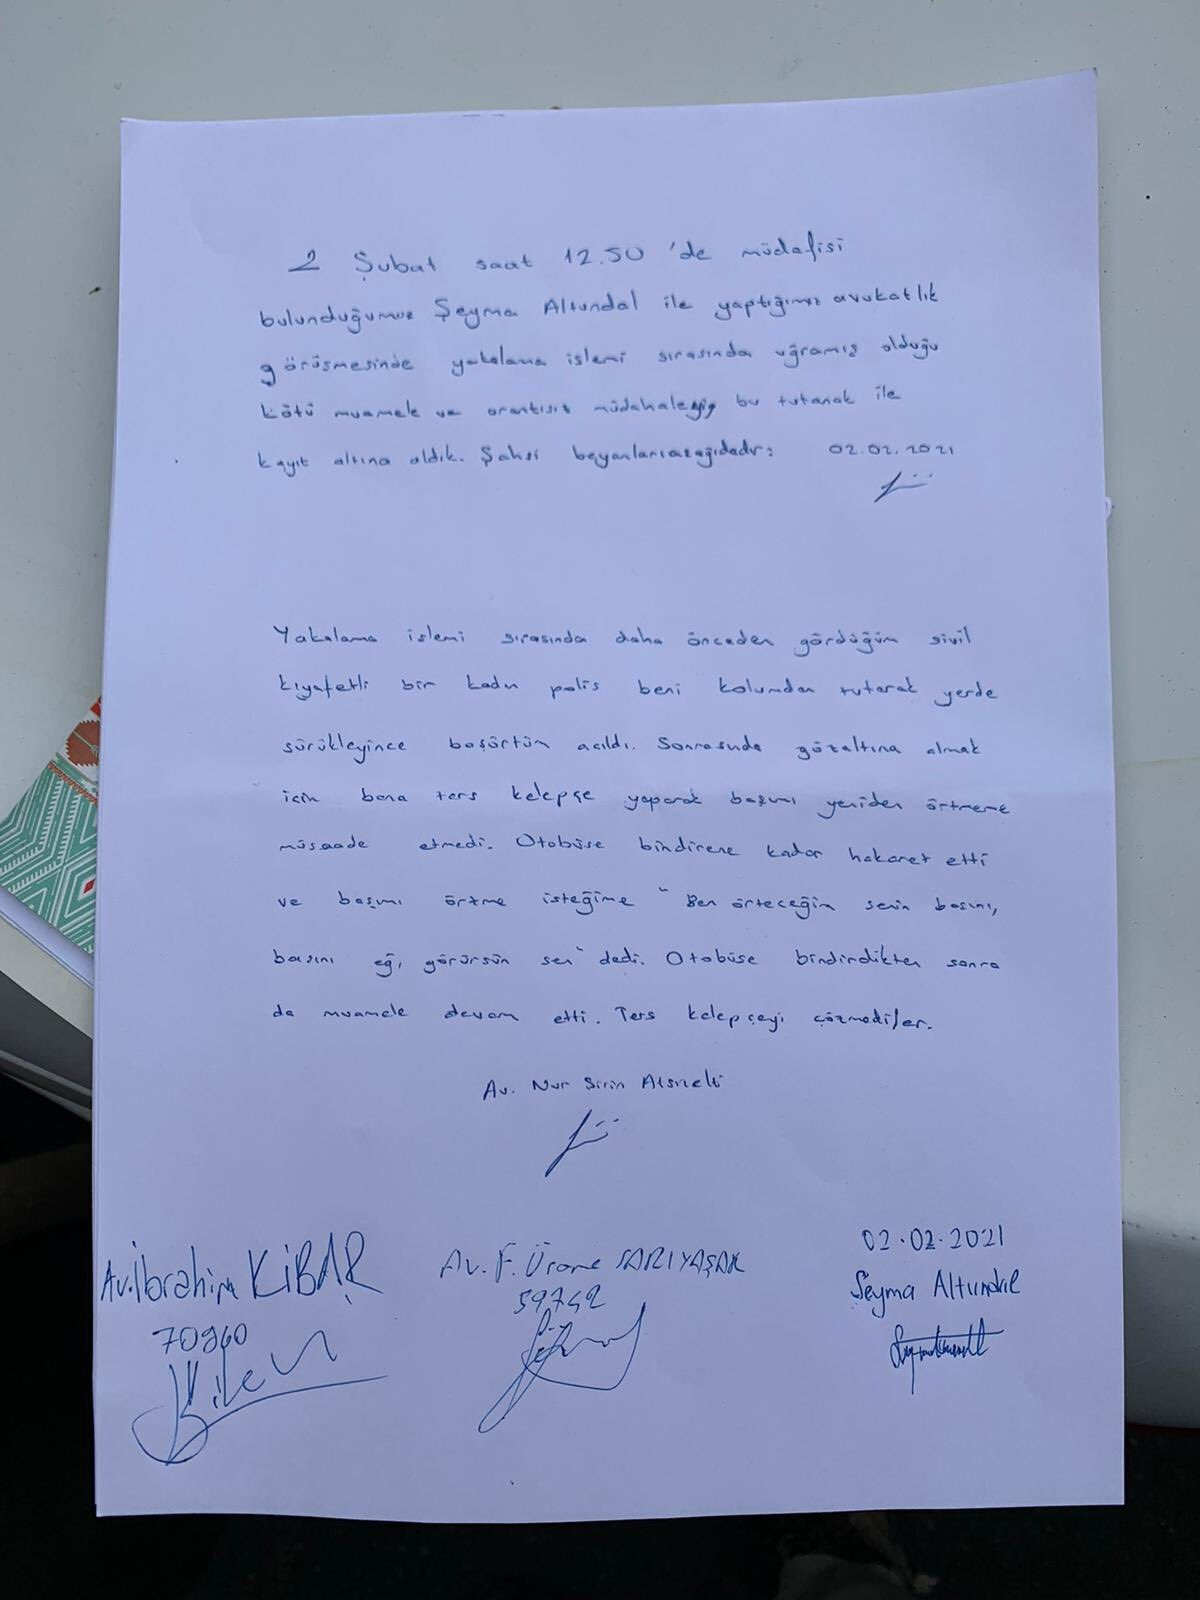 2 Şubat saat 12.50 'de müdafisi
bulunduğumuz Şeyma Altundal ile yaptığımız avukatlık
görüşmesinde yakalama işlemi sırasında uğramış olduğu
kötü muamele ve orantısız müdahaleyi bu tutanak ile
kayıt altına aldık. Şahsi beyanları aşağıdadır: 02.02.2021
Yakalama işlemi sırasında daha önceden gördüğüm sivil
kıyafetli bir kadın polis beni kolumdan tutarak yerde
sürükleyince başörtüm açıldı. Sonrasında gözaltına almak
için bana ters kelepçe yaparak başımı yeniden örtmeme
müsaade etmedi. Otobüse bindirene kadar hakaret etti
ve başımı örtme isteğime "Ben örteceğim senin başını,
başını eğ, görürsün sen" dedi. Otobüse bindirdikten sonra
da muamele devam etti. Ters kelepçeyi çözmediler.
Av. Nur Sirin
02.02.2021
Av. İbrahim KİBAR
Av. F. Ürane SARIYAŞAR
Şeyma Altundal
59742